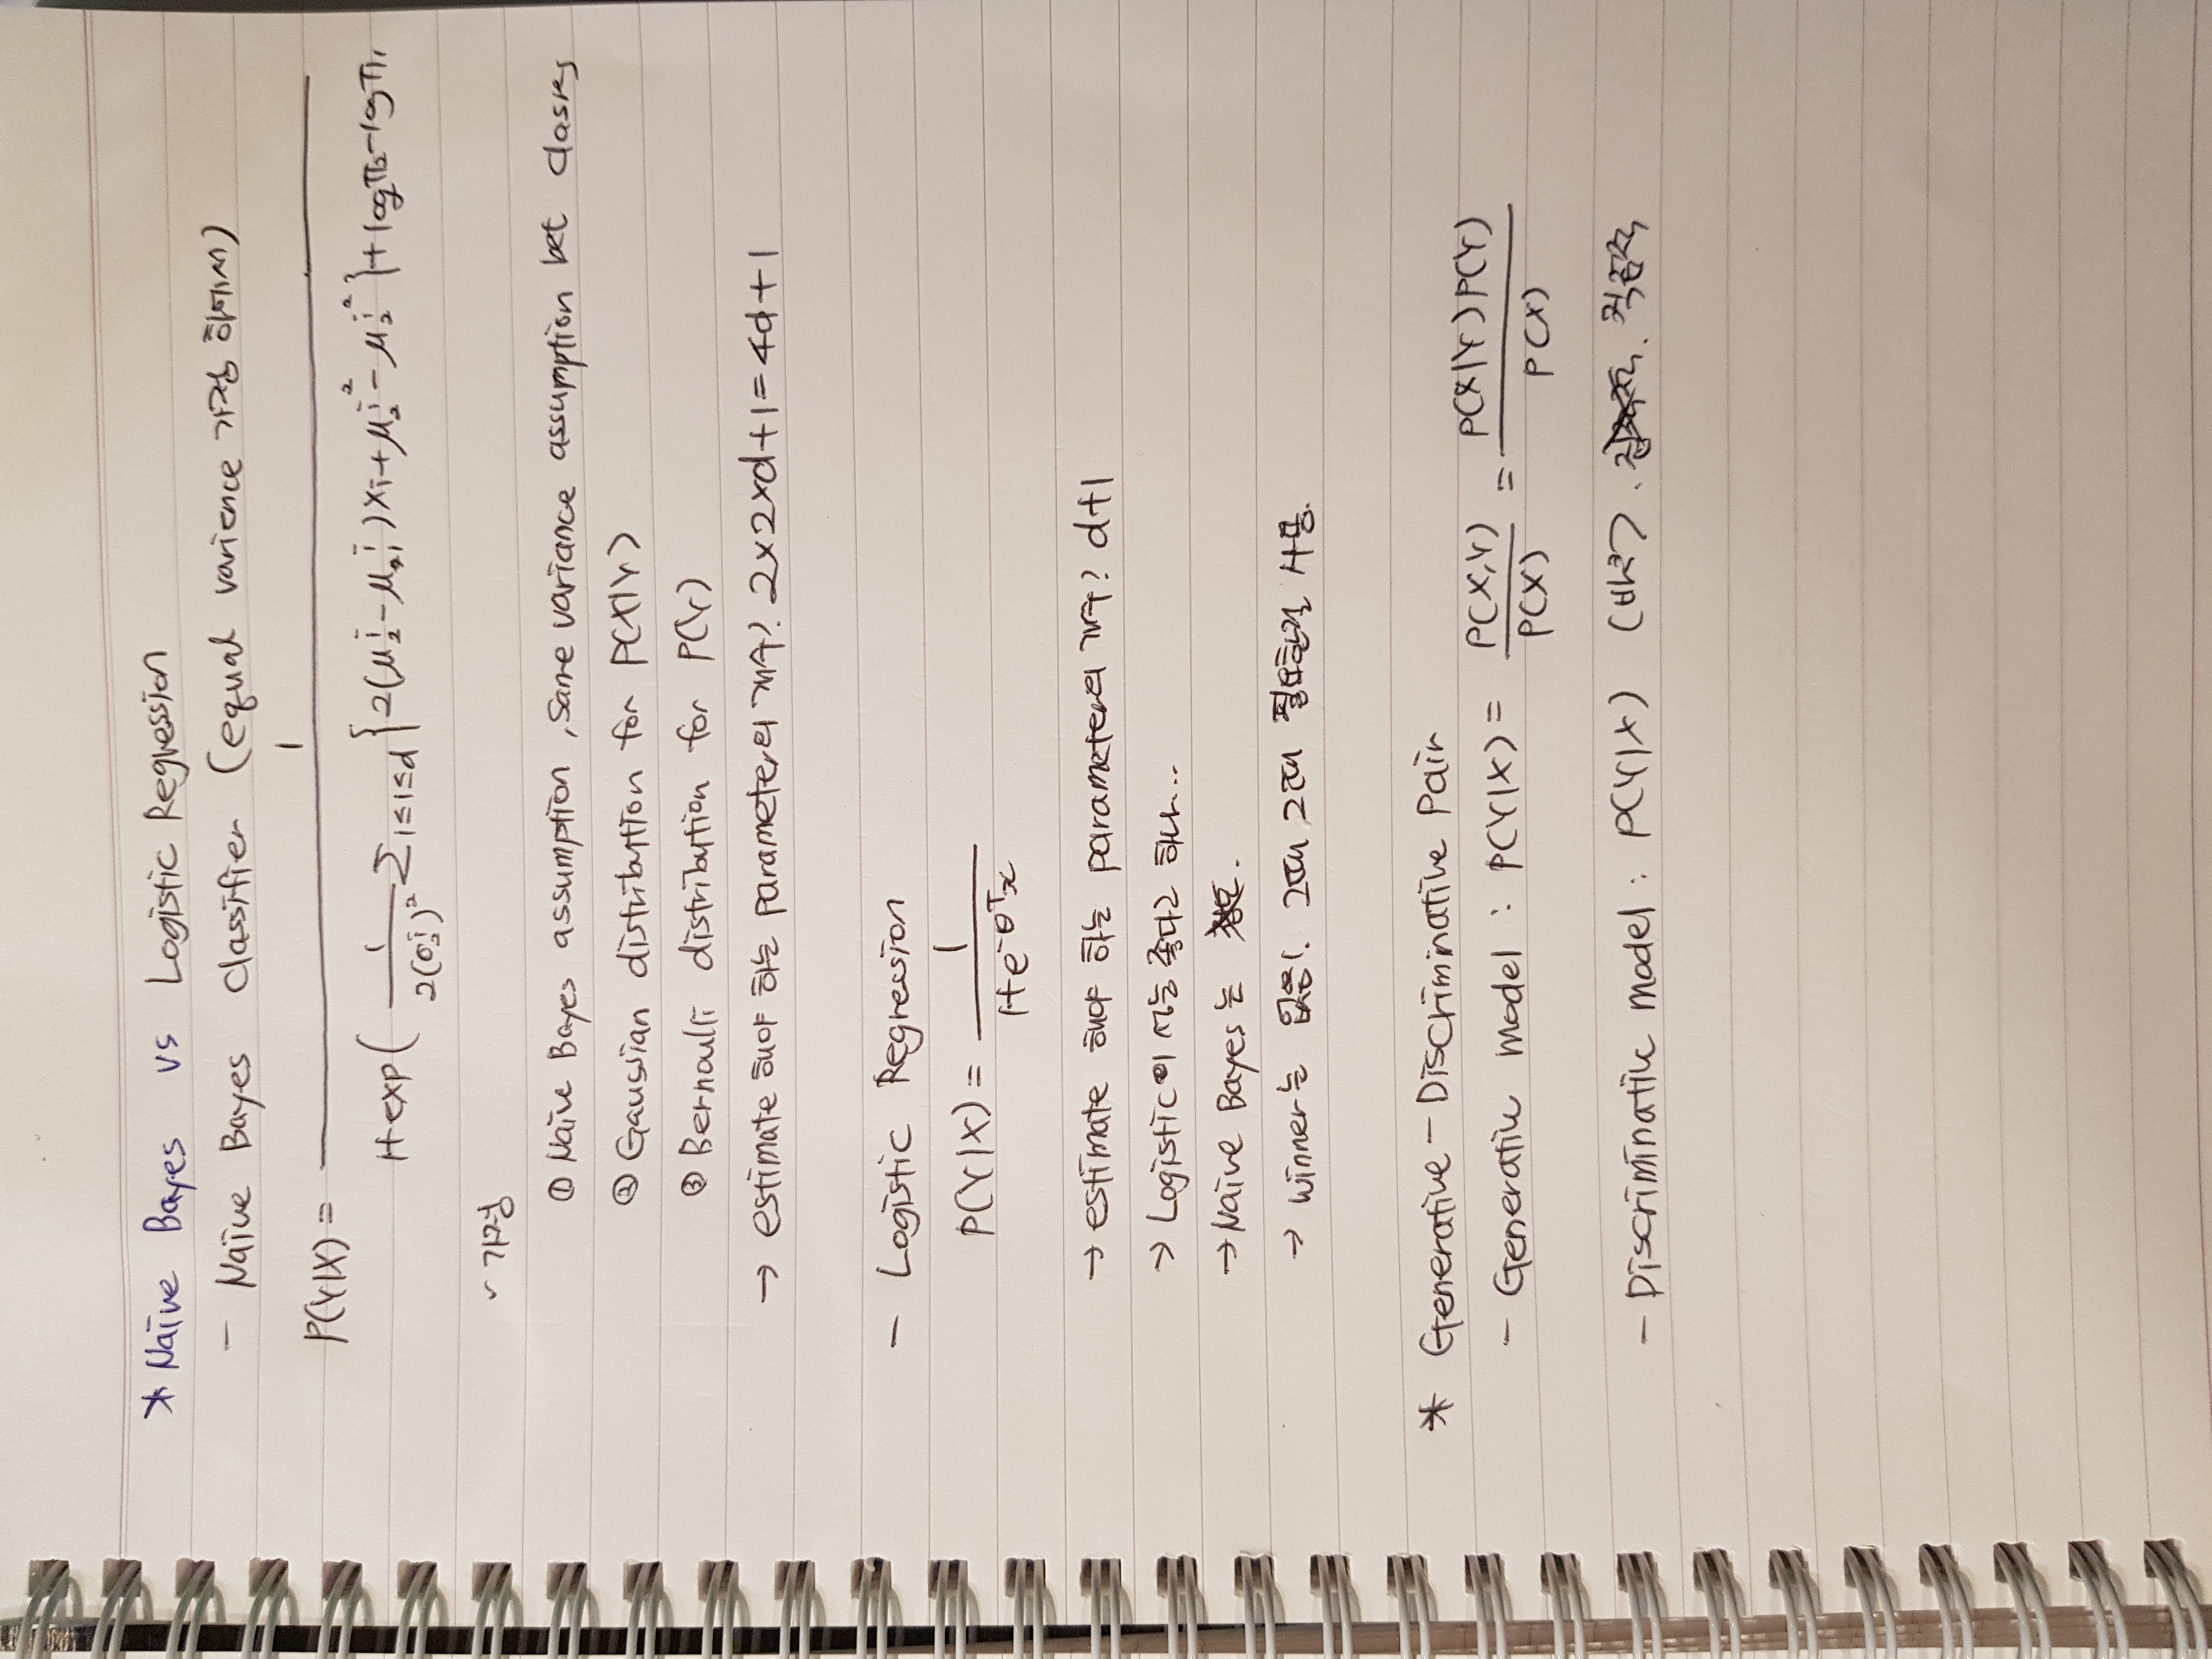 * Naïve Bayes vs Logistic Regression
- Naïve Bayes Classifier (equal varience 가정 하에서)
P(Y|X) = 1 / 1+exp( 1/2(σ²ⁱ)² Σ1≤i≤d {2(μ₂ⁱ-μ₁ⁱ)Xi+μ₂ⁱ²-μ₂ⁱ²}+logπ₂-logπ₁
✓ 가정
① Naïve Bayes assumption, same variance assumption bet classes
② Gaussian distribution for P(X|Y)
③ Bernoulli distribution for P(Y)
→ estimate 해야 하는 parameter의 개수? 2×2×d+1=4d+1
- Logistic Regression
P(Y|X) = 1 / 1+e^-θᵀx
→ estimate 해야 하는 parameter의 개수? d+1
→ Logistic이 성능 좋다고 하나...
→ Naïve Bayes는 .
→ winner는 없음!. 그때 그때 필요한걸 사용.
* Generative - Discriminative Pair
- Generative model : P(Y|X) = P(X,Y) / P(X) = P(X|Y)P(Y) / P(X)
- Discriminative model : P(Y|X) (바로) .